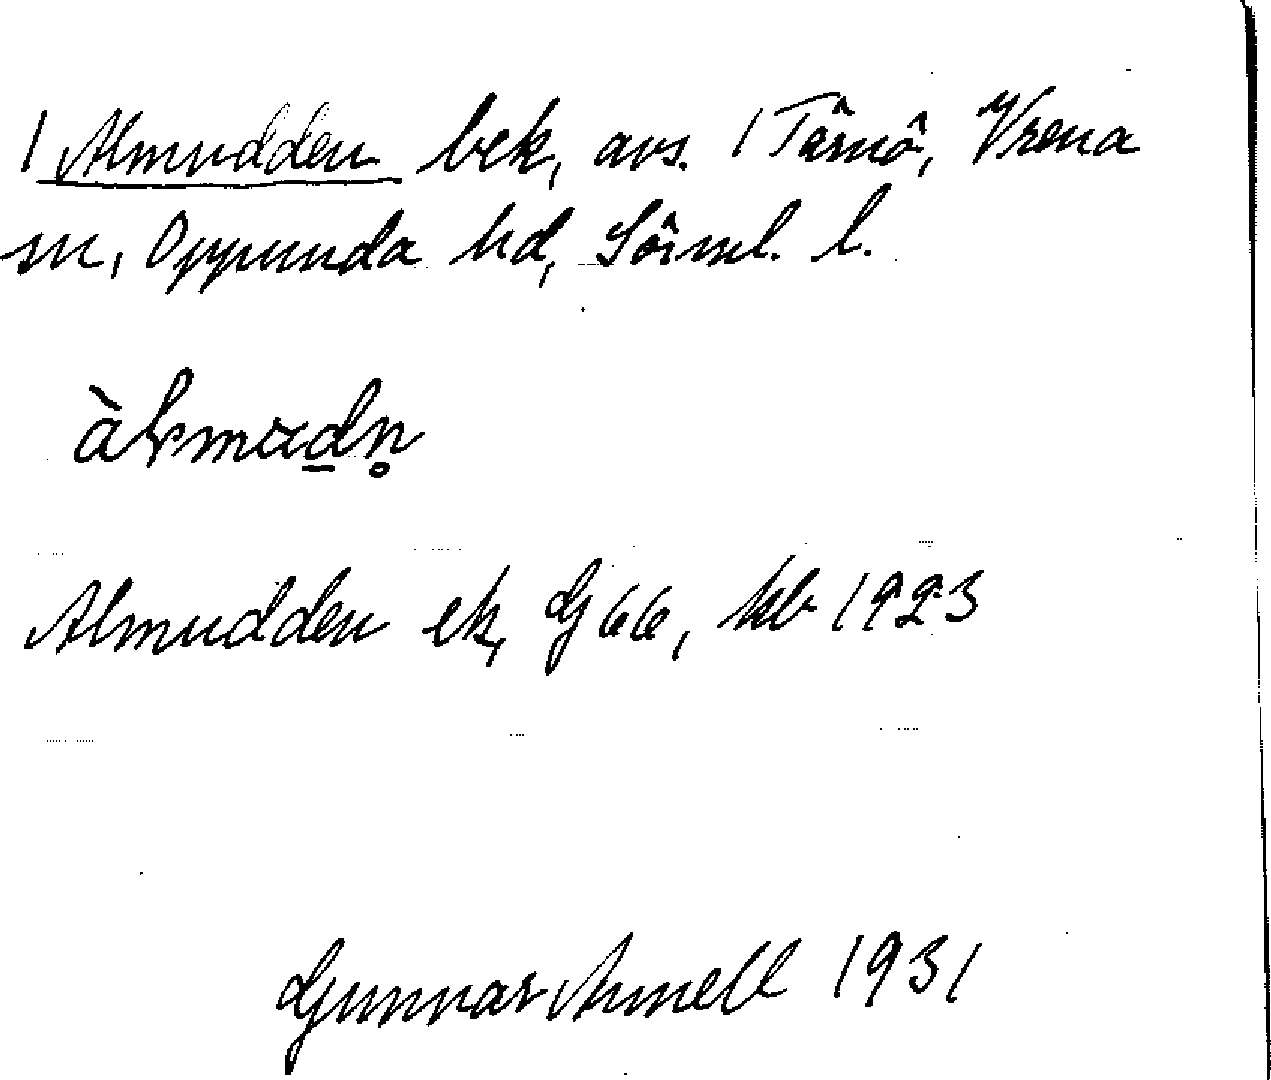 1 Almudden bek, avs. 1 Tärnö, Vrena
sn, Oppunda hd, Sörml. l.
Almudden ek, G 66, kb 1923
Gunnar Amnell 1931